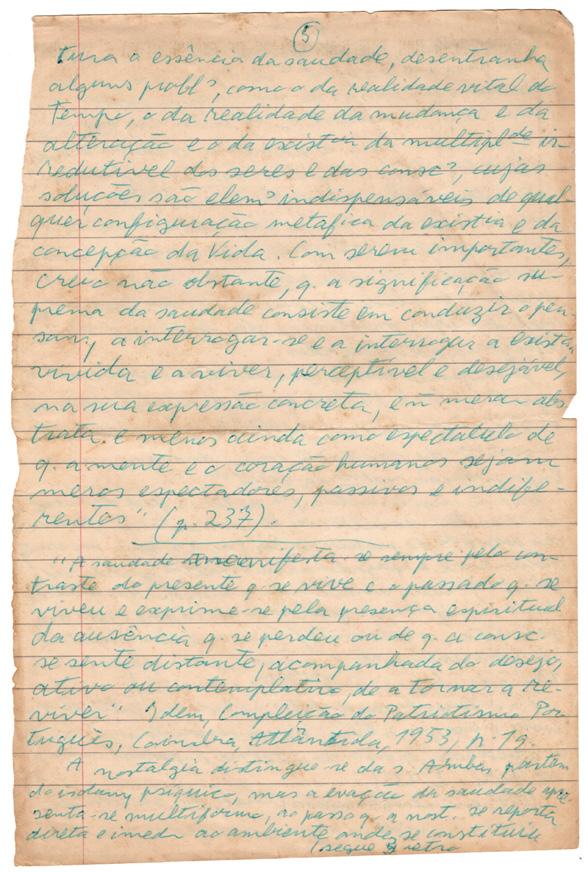 5
tura a essência da saudade, desentranha
alguns probl^s, como o da realidade vital do
Tempo, o da realidade da mudança e da
alteração e o da exist^cia da multipl^de ir-
redutível dos seres e das consc^s, cujas
soluções são elem^s indispensáveis de qual-
quer configuração metafica da exist^ia e da
concepção da Vida. Com serem importantes,
creio não obstante, q. a significação su-
prema da saudade consiste em conduzir o pen-
sam, a interrogar-se e a interrogar a exist^cia
vivida e a viver, perceptível e desejável,
na sua expressão concreta, e ñ mera abs
trata e menos ainda como espectáculo de
q. a mente e o coração humanos sejam
meros espectadores, passivos e indife-
rentes" (p. 237).
"A saudade manifesta-se sempre pelo con-
traste do presente q. se vive e o passado q. se
viveu e exprime-se pela presença espiritual
da ausência q. se perdeu ou de q. a consc.
se sente distante, acompanhada do desejo,
ativo ou contemplativo, de a tornar a re-
viver" Idem, Compleição do Patriotismo Por
tuguês, Coimbra, Atlântida, 1953, p. 19.
A nostalgia distingue-se da s. Ambas partem
do psíquico, mas a evação da saudade apre
senta-se multiforme, ao passo q. a nost. se reporta
direta e imed^a ao ambiente onde se constitui
(segue